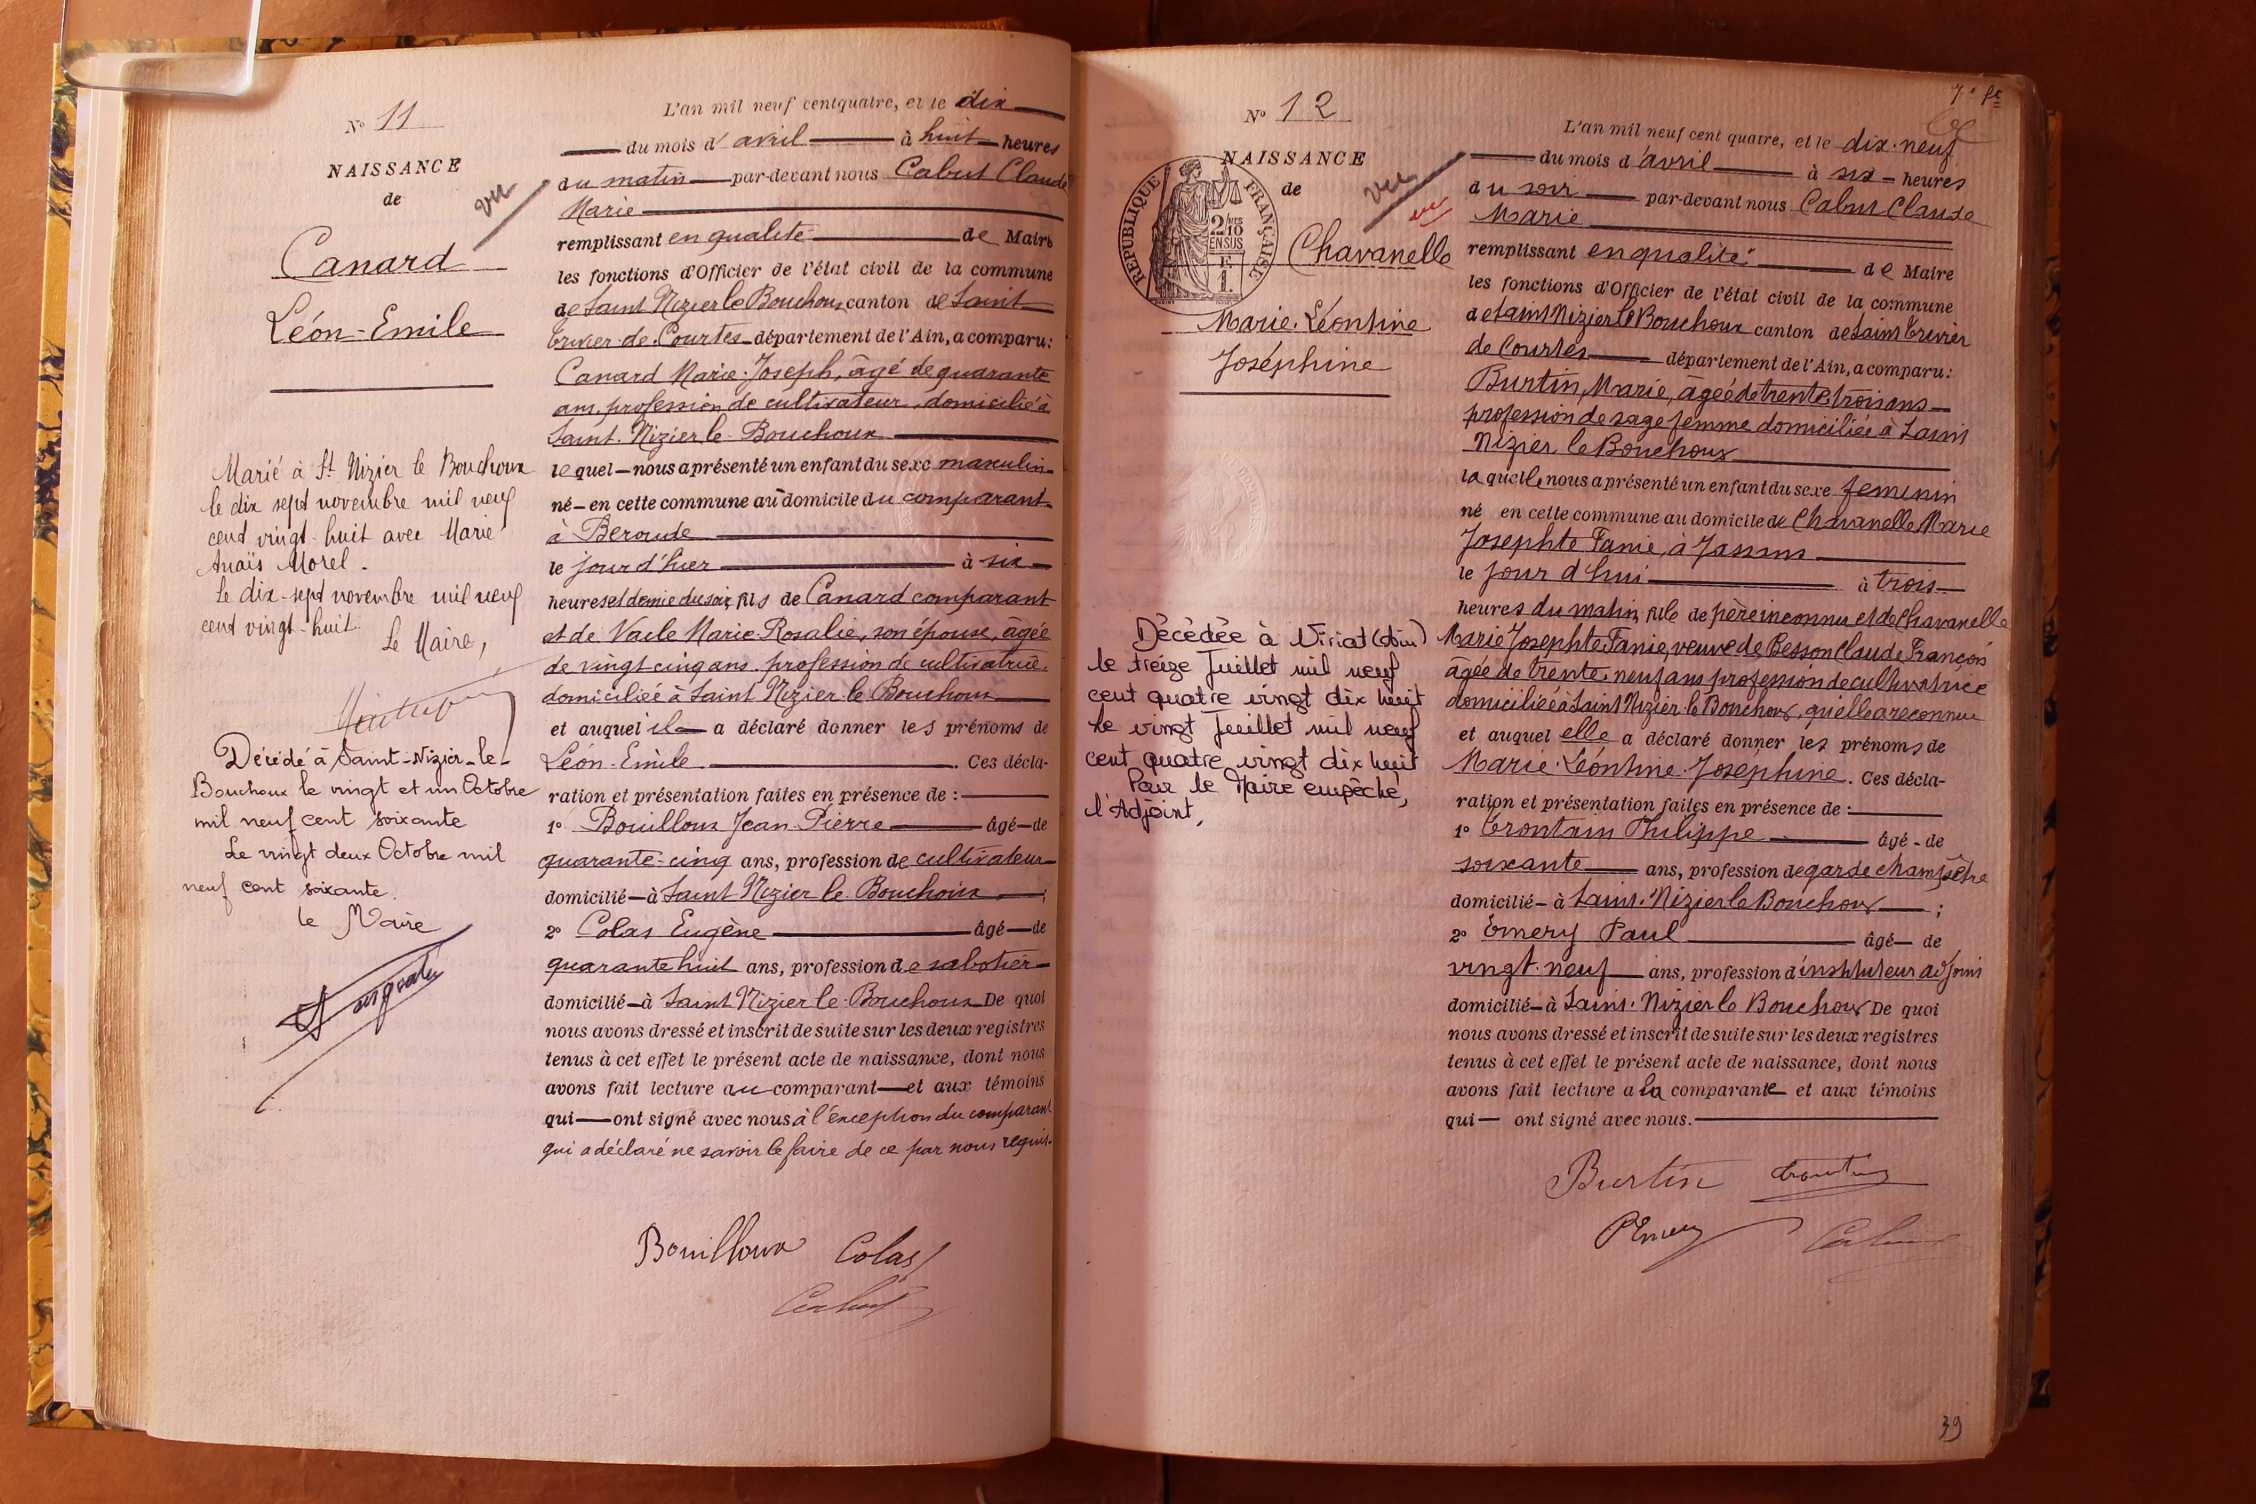 N° 11
NAISSANCE
de
vu
Canard
Léon-Emile
Marié à St Nizier le Bouchoux
le dix sept novembre mil neuf
cent vingt-huit avec Marie
Anaïs Morel.
le dix-sept novembre mil neuf
cent vingt-huit.
Le Maire,
Décédé à Saint-Nizier-le-
Bouchoux le vingt et un Octobre
mil neuf cent soixante
Le vingt deux Octobre mil
neuf cent soixante.
le Maire
L'an mil neuf cent quatre, et le dix
du mois d'avril à huit heures
du matin par-devant nous Cabut Claude
Marie
remplissant en qualité de Maire
les fonctions d'Officier de l'état civil de la commune
de Saint Nizier le Bouchoux canton de Saint
Trivier-de-Courtes département de l'Ain, a comparu:
Canard Marie-Joseph, âgé de quarante
ans, profession de cultivateur, domicilié à
Saint-Nizier le Bouchoux
lequel nous a présenté un enfant du sexe masculin
né en cette commune au domicile du comparant
à Beroude
le jour d'hier à six
heures et demie du soir, fils de Canard comparant
et de Vacle Marie-Rosalie, son épouse, âgée
de vingt cinq ans, profession de cultivatrice,
domiciliée à Saint Nizier le Bouchoux
et auquel il a déclaré donner les prénoms de
Léon-Emile. Ces décla-
ration et présentation faites en présence de:
1° Bouilloux Jean-Pierre âgé de
quarante-cinq ans, profession de cultivateur
domicilié à Saint Nizier le Bouchoux;
2° Colas Eugène âgé de
quarante huit ans, profession de sabotier
domicilié à Saint Nizier le Bouchoux De quoi
nous avons dressé et inscrit de suite sur les deux registres
tenus à cet effet le présent acte de naissance, dont nous
avons fait lecture au comparant et aux témoins
qui ont signé avec nous à l'éxception du comparant
qui a déclaré ne savoir le faire de ce par nous requis.
Bouilloux Colas
Cabut
N° 12
NAISSANCE
de
vu
vu
RÉPUBLIQUE FRANÇAISE
2/10 EN SUS
F
1.
Chavanelle
Marie-Léontine
Joséphine
Décédée à Viriat (Ain)
le treize Juillet mil neuf
cent quatre vingt dix huit
Le vingt Juillet mil neuf
cent quatre vingt dix huit
Pour le Maire empêché,
l'Adjoint,
L'an mil neuf cent quatre, et le dix-neuf
du mois d'avril à six heures
du soir par-devant nous Cabut Claude
Marie
remplissant en qualité de Maire
les fonctions d'Officier de l'état civil de la commune
de Saint Nizier le Bouchoux canton de Saint Trivier
de Courtes département de l'Ain, a comparu:
Burtin, Marie, âgée de trente trois ans
profession de sage femme domiciliée à Saint
Nizier le Bouchoux
laquelle nous a présenté un enfant du sexe féminin
né en cette commune au domicile de Chavanelle Marie
Josephte Fanie, à Jassans
le jour d'hui à trois
heures du matin, fille de père inconnu et de Chavanelle
Marie Josephte Fanie, veuve de Besson Claude François
âgée de trente-neuf ans profession de cultivatrice
domiciliée à Saint Nizier le Bouchoux, qu'elle a reconnu
et auquel elle a déclaré donner les prénoms de
Marie-Léontine-Joséphine. Ces décla-
ration et présentation faites en présence de:
1° Trontain Philippe âgé de
soixante ans, profession de garde champêtre
domicilié à Saint-Nizier le Bouchoux;
2° Emery Paul âgé de
vingt-neuf ans, profession d'instituteur adjoint
domicilié à Saint-Nizier le Bouchoux De quoi
nous avons dressé et inscrit de suite sur les deux registres
tenus à cet effet le présent acte de naissance, dont nous
avons fait lecture a la comparante et aux témoins
qui ont signé avec nous.
Burtin
PEmery
39